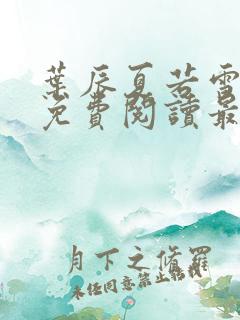 葉辰夏若雪
免費閱讀最
月下之修羅
未任同意禁止轉載